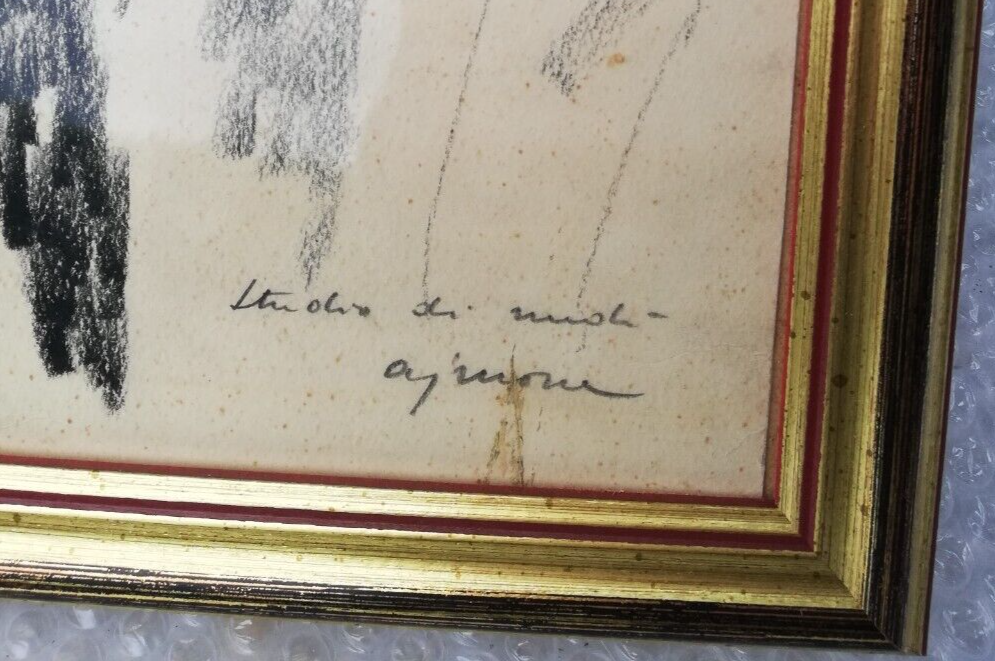 Studio di nudi -
ajmone